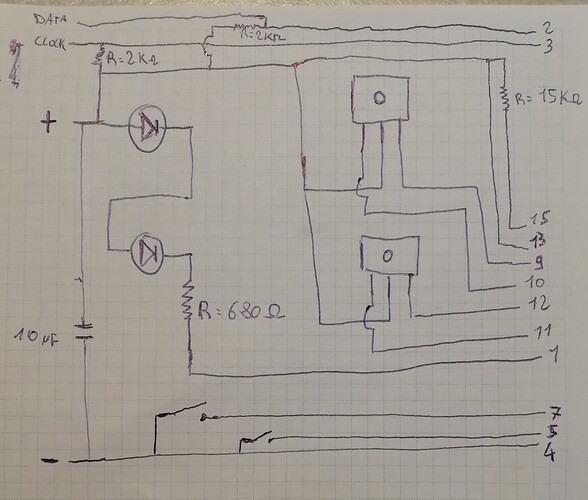 DATA
2
R=2KΩ
CLOCK
3
R=2KΩ
R=15KΩ
+
15
13
9
10
12
R=680Ω
10 µF
11
1
7
5
4
-